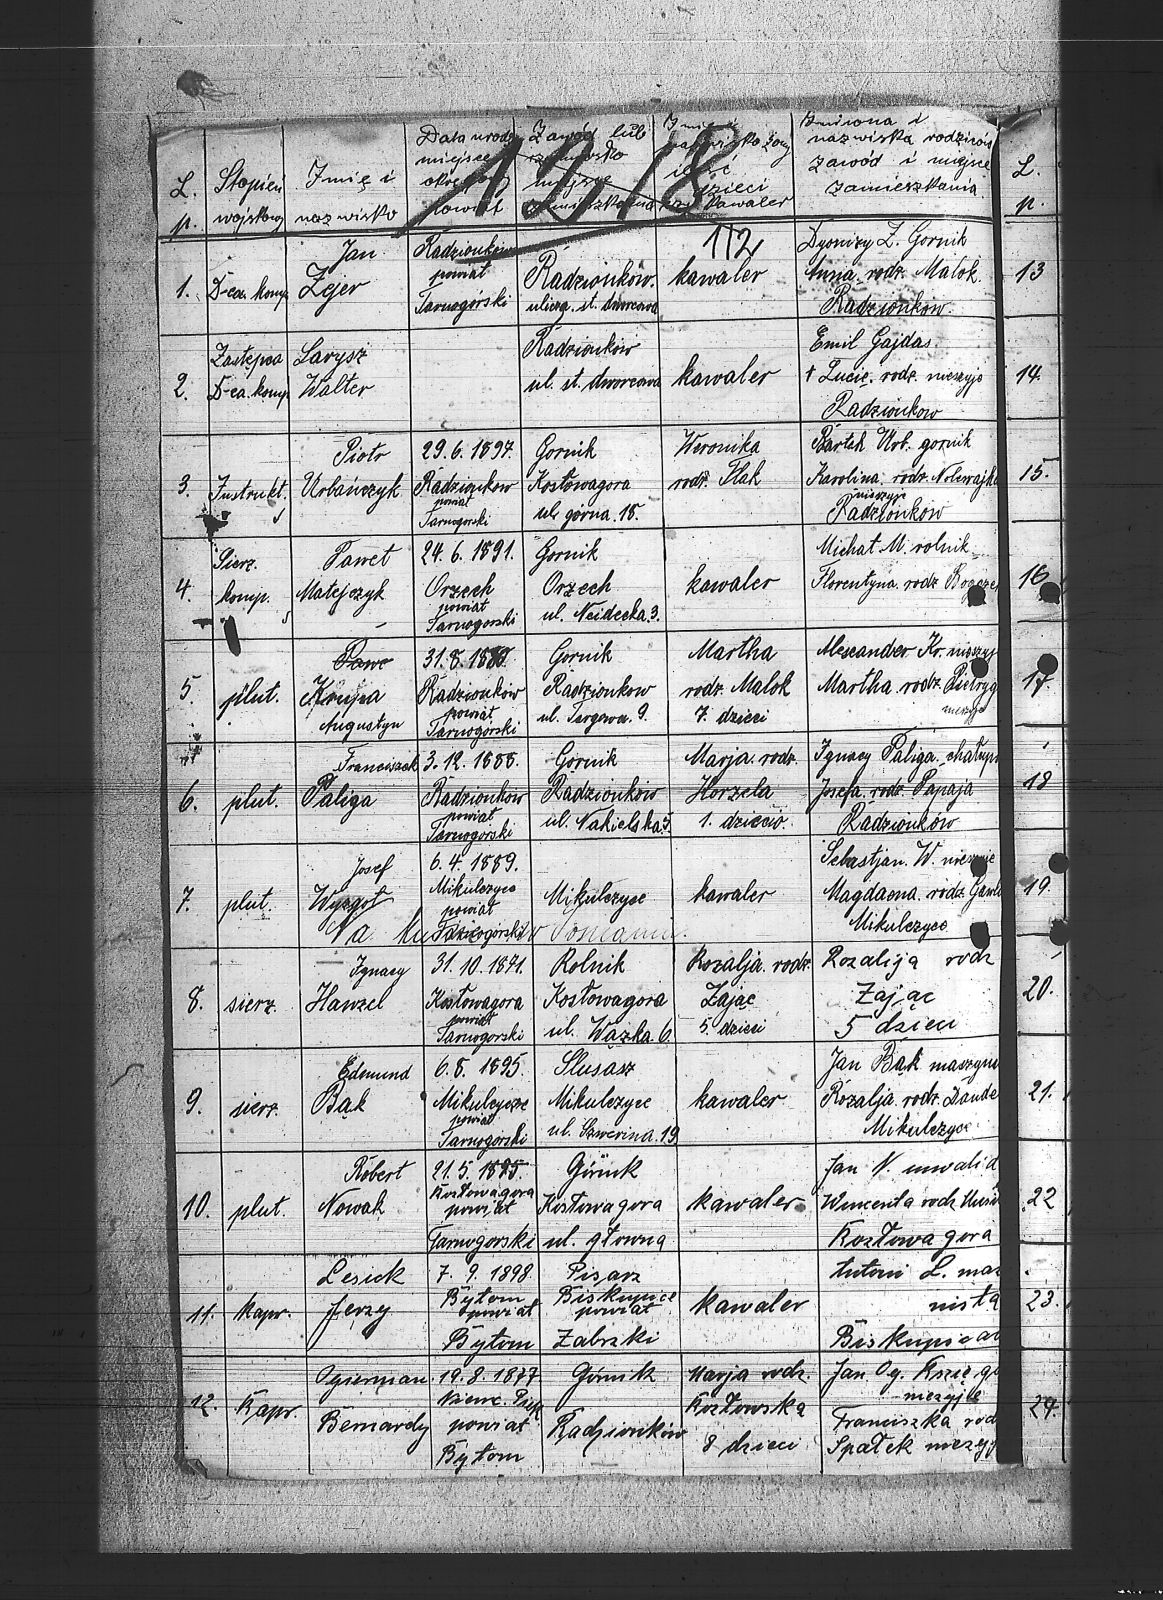 L. p.
Stopień wojskowy
Imię i nazwisko
Data urodz. miejsce powiat
Zawód lub miejsce zamieszkania
Imię i nazwisko żony ilość dzieci czy kawaler
Imiona i nazwiska rodziców zawód i miejsce zamieszkania
L. p.
1218
112
1. D-ca. komp. Jan Zejer
Radzionków powiat Tarnogórski
Radzionków. ulica. st. dworcowa
kawaler
Dyonizy Z. Gornik
Anna. rodz. Malok.
Radzionków.
13
2. Zastępca D-ca. komp. Larysz Walter
Radzionków
ul. st. dworcowa
kawaler
Emil Gajdas.
+ Lucie. rodz. nieżyje
Radzionkow
14.
3. Instrukt. Piotr Urbańczyk
29. 6. 1897. Radzionkow powiat Tarnogorski
Gornik
Kozłowagora
ul. górna. 18.
Weronika
rodz. Flak
Bartek Urb. gornik
Karolina. rodz.
nieżyje
Radzionkow
15.
4. Sierz. komp. Paweł Matejczyk
24. 6. 1891. Orzech powiat Tarnogorski
Gornik
Orzech
ul. Neidecka 3.
kawaler
Michał M. rolnik
Florentyna. rodz.
16
5. plut. Krupa Augustyn
31. 8. 1889. Radzionków powiat Tarnogórski
Gornik
Radzionkow
ul. Targowa. 9.
Martha
rodz. Malok
7. dzieci
Alexander Kr.
Martha rodz.
17
6. plut. Franciszek Paliga
3. 12. 1888. Radzionkow powiat Tarnogórski
Górnik
Radzionkow
ul. Nakielska 5.
Marja. rodz.
Horzela
1. dziecio.
Ignacy Paliga.
Josefa. rodz. Papaja
Radzionków
18
7. plut. Josef Wyzgoł
6. 4. 1889. Mikulczyce powiat Tarnogorski
Mikulczyce
kawaler
Sebastjan. W.
Magdaena. rodz.
Mikulczyce
19.
8. sierz. Ignacy Hanzel
31. 10. 1871. Kozłowagora powiat Tarnogorski
Rolnik
Kozłowagora
ul. Wązka. 6.
Rozalja. rodz.
Zając
5. dzieci
Rozalija rodz
Zając
5 dzieci
20.
9. sierz. Edmund Bąk
6. 8. 1895. Mikulczyce powiat Tarnogórski
Slusasz
Mikulczyce
ul. Szwerina. 19
kawaler
Jan Bąk
Rozalja rodz.
Mikulczyce
21.
10. plut. Robert Nowak
21. 5. 1895. Kozłowagora powiat Tarnogorski
Górnik
Kozłowagora
ul. głowna
kawaler
Jan N.
Wincenta rodz
Kozłowa gora
22
11. Kapr. Lesick Jerzy
7. 9. 1898 Bytom powiat Bytom
Pisarz
Biskupice powiat Zabrski
kawaler
L.
23.
12. Kapr. Ogierman Bernardy
19. 8. 1877 powiat Bytom
Górnik
Radzionków
Marja rodz.
Kozłowska
8 dzieci
Jan Og.
nieżyje
Franciszka rod
Spałek
24.